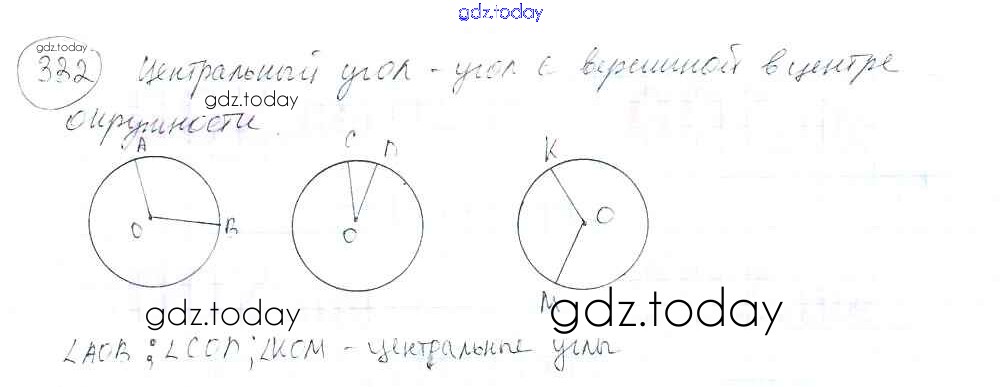 gdz.today
gdz.today
322 Центральный угол - угол с вершиной в центре
gdz.today
окружности.
A C П K
O B O O
M
gdz.today gdz.today
∠AOB; ∠COП; ∠KOM - центральные углы